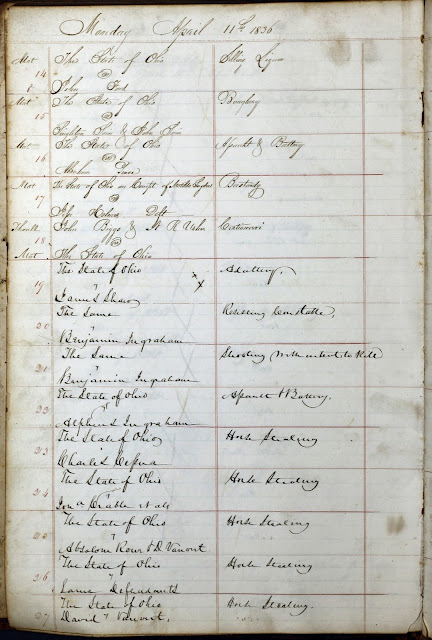 Monday April 11th 1836
The State of Ohio Selling Liquor
14 @
John Ford
The State of Ohio Burglary
15 @
& John
The State of Ohio Assault & Battery
16 @
Abraham
The State of Ohio on Compt of Bastardy
17 @
Holmes Deft
John Biggs & W R
18 @
The State of Ohio
The State of Ohio Adultery.
19 vs
James Shaw
The Same Resisting Constable.
20 vs
Benjamin Ingraham
The Same Shooting with intent to Kill
21 vs
Benjamin Ingraham
The State of Ohio Assault & Battery.
22 vs
Alpheus Ingraham
The State of Ohio Horse Stealing
23 vs
Charles
The State of Ohio Horse Stealing
24 vs
et als
The State of Ohio Horse Stealing
25 vs
Absalom Rowe & D. Vanvort
The State of Ohio Horse Stealing
26 vs
Same Defendants
The State of Ohio Horse Stealing.
27 David Vanvort.